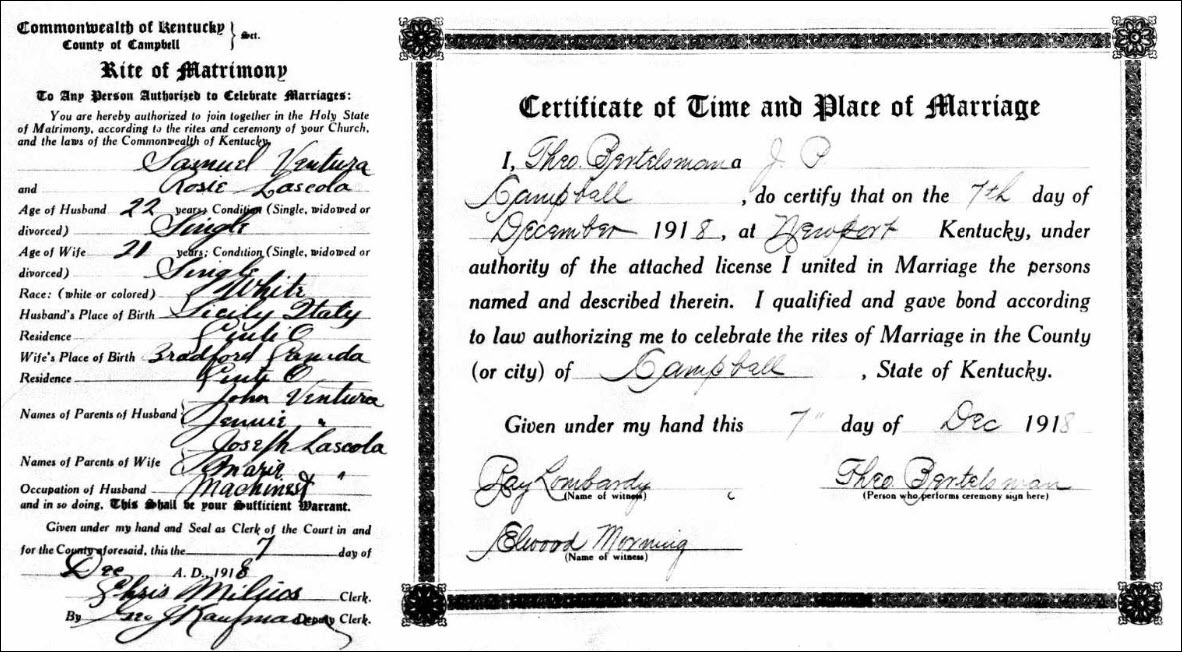 Commonwealth of Kentucky
County of Campbell } Sct.
Rite of Matrimony
To Any Person Authorized to Celebrate Marriages:
You are hereby authorized to join together in the Holy State
of Matrimony, according to the rites and ceremony of your Church,
and the laws of the Commonwealth of Kentucky,
Samuel Ventura
and Rosie Lascola
Age of Husband 22 years; Condition (Single, widowed or
divorced) Single
Age of Wife 21 years; Condition (Single, widowed or
divorced) Single
Race: (white or colored) White
Husband's Place of Birth Sicily Italy
Residence Cinti O
Wife's Place of Birth Bradford Canada
Residence Cinti O
John Ventura
Names of Parents of Husband Jennie "
Joseph Lascola
Names of Parents of Wife Marie "
Occupation of Husband Machinest
and in so doing, This Shall be your Sufficient Warrant.
Given under my hand and Seal as Clerk of the Court in and
for the County aforesaid, this the 7 day of
Dec A. D., 1918
Chris Clerk.
By Geo J Kaufman Deputy Clerk.
Certificate of Time and Place of Marriage
I, Theo. Bertelsman a J P
Campball, do certify that on the 7th day of
December 1918, at Newport Kentucky, under
authority of the attached license I united in Marriage the persons
named and described therein. I qualified and gave bond according
to law authorizing me to celebrate the rites of Marriage in the County
(or city) of Campball, State of Kentucky.
Given under my hand this 7" day of Dec 1918
Ray Lombardy
(Name of witness)
Theo. Bertelsman
(Person who performs ceremony sign here)
Elwood Morning
(Name of witness)